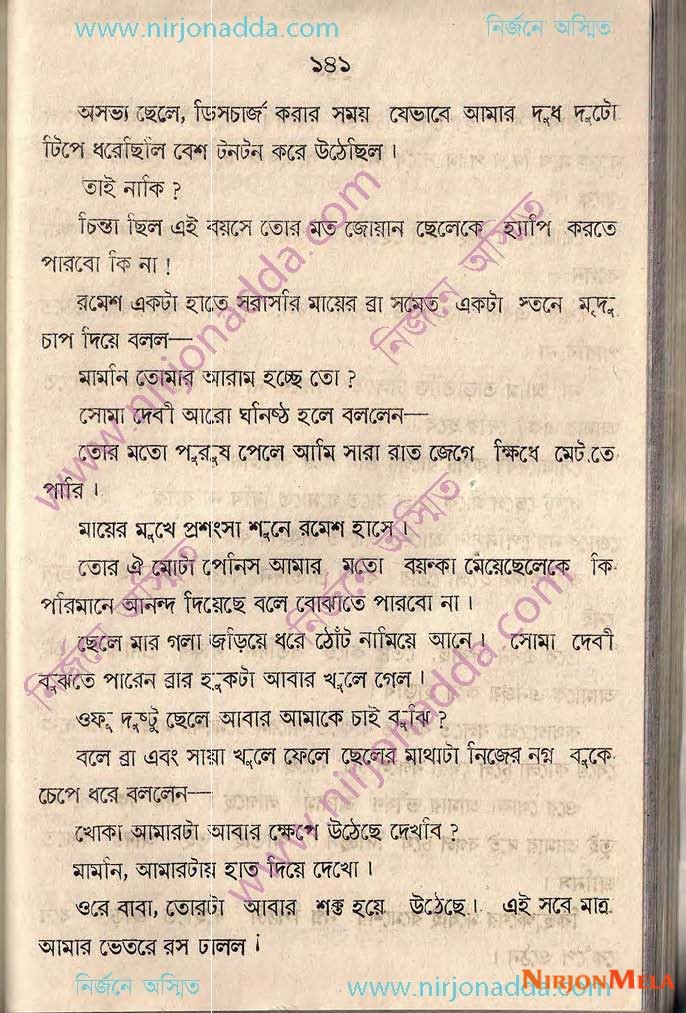 www.nirjonadda.com নির্জনে অস্মিত
১৪১
অসভ্য ছেলে, ডিসচার্জ করার সময় যেভাবে আমার দুধ দুটো
টিপে ধরেছিলি বেশ টনটন করে উঠেছিল।
তাই নাকি ?
চিন্তা ছিল এই বয়সে তোর মত জোয়ান ছেলেকে হ্যাপি করতে
পারবো কি না !
রমেশ একটা হাতে সরাসরি মায়ের ব্রা সমেত একটা স্তনে মৃদু
চাপ দিয়ে বলল—
মামনি তোমার আরাম হচ্ছে তো ?
সোমা দেবী আরো ঘনিষ্ঠ হলে বললেন—
তোর মতো পুরুষ পেলে আমি সারা রাত জেগে ক্ষিধে মেটতে
পারি।
মায়ের মুখে প্রশংসা শুনে রমেশ হাসে।
তোর ঐ মোটা পেনিস আমার মতো বয়স্কা মেয়েছেলেকে কি
পরিমানে আনন্দ দিয়েছে বলে বোঝাতে পারবো না।
ছেলে মার গলা জড়িয়ে ধরে ঠোঁট নামিয়ে আনে। সোমা দেবী
বুঝতে পারেন ব্রার হুকটা আবার খুলে গেল।
ওফ্ দুষ্টু ছেলে আবার আমাকে চাই বুঝি ?
বলে ব্রা এবং সায়া খুলে ফেলে ছেলের মাথাটা নিজের নগ্ন বুকে
চেপে ধরে বললেন—
খোকা আমারটা আবার ক্ষেপে উঠেছে দেখবি ?
মামনি, আমারটায় হাত দিয়ে দেখো।
ওরে বাবা, তোরটা আবার শক্ত হয়ে উঠেছে। এই সবে মাত্র
আমার ভেতরে রস ঢালল।
নির্জনে অস্মিত www.nirjonadda.com
NIRJONMELA
www.nirjonadda.com
নির্জনে অস্মিত
নির্জনে অস্মিত
নির্জনে অস্মিত
www.nirjonadda.com